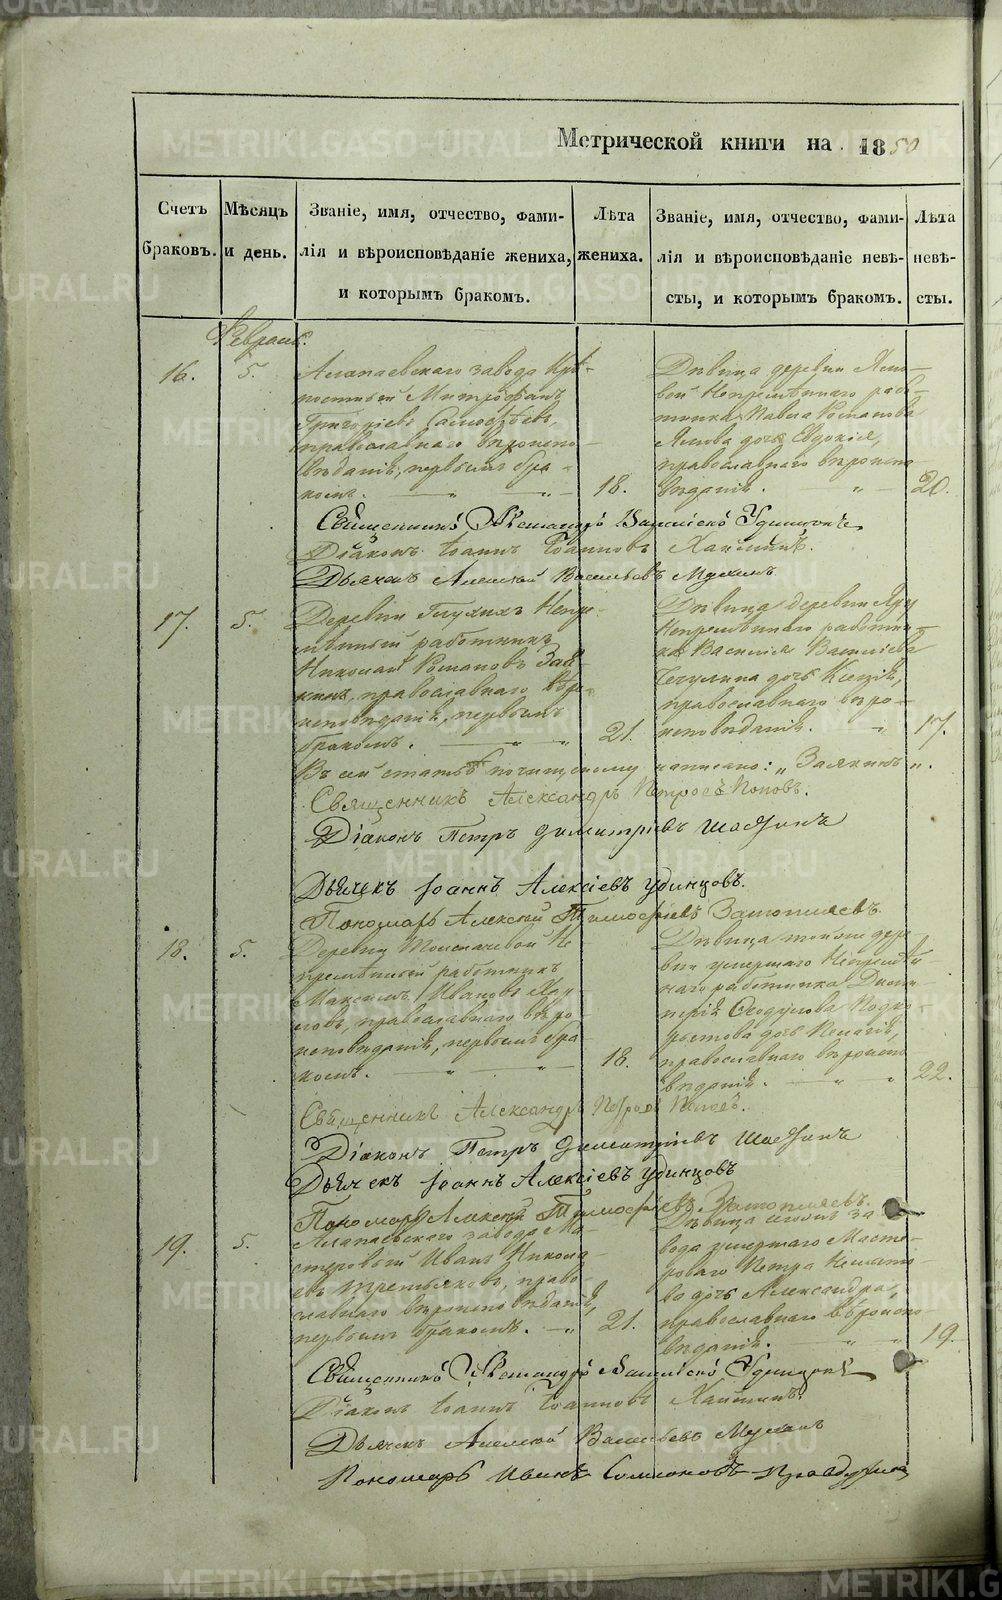 Метрической книги на 1850
Счетъ браковъ.
Мѣсяцъ и день.
Званіе, имя, отчество, фами-
лія и вѣроисповѣданіе жениха,
и которымъ бракомъ.
Лѣта
жениха.
Званіе, имя, отчество, фами-
лія и вѣроисповѣданіе невѣ-
сты, и которымъ бракомъ.
Лѣта
невѣ-
сты.
Февраль.
16.
5.
Алапаевскаго завода Крѣ-
постный Митрофанъ
Григорьевъ
православнаго вѣроиспо-
вѣданія, первымъ бра-
комъ.
18.
Дѣвица деревни
вой Непремѣннаго рабо-
тника Павла Романова
дочь Евдокія,
православнаго вѣроиспо-
вѣданія.
20.
Священникъ Александръ Удинцовъ
Діаконъ Іоаннъ Іоанновъ
Дьячекъ Алексѣй Васильевъ
17.
5.
Деревни Глухихъ Непре-
мѣнный работникъ
Николай Романовъ Зая-
кинъ, православнаго вѣро-
исповѣданія, первымъ
бракомъ.
21.
Дѣвица деревни
Непремѣннаго работни-
ка Василія Васильева
дочь
православнаго вѣро-
исповѣданія.
17.
Въ сей статьѣ по чищеному написано: „Заякинъ„.
Священникъ Александръ Петровъ Поповъ.
Діаконъ Петръ Димитріевъ
Дьячекъ Іоаннъ Алексіевъ Удинцовъ.
Пономарь Алексѣй Тимоѳеевъ Затопляевъ.
18.
5.
Деревни Толмачевой Не-
премѣнный работникъ
Максимъ Ивановъ
православнаго вѣро-
исповѣданія, первымъ бра-
комъ.
18.
Дѣвица тойже дере-
вни умершаго Непремѣн-
наго работника Дими-
трія Ѳеодулова Подко-
рытова дочь Пелагія,
православнаго вѣроиспо-
вѣданія.
22.
Священникъ Александръ Петровъ Поповъ.
Діаконъ Петръ Димитріевъ
Дьячекъ Іоаннъ Алексіевъ Удинцовъ
Пономарь Алексѣй Тимоѳеевъ Затопляевъ.
19.
5.
Алапаевскаго завода Ма-
стеровый Иванъ Никола-
евъ Третьяковъ, право-
славнаго вѣроисповѣданія,
первымъ бракомъ.
21.
Дѣвица тогожъ за-
вода умершаго Масте-
роваго Петра
дочь Александра,
православнаго вѣроиспо-
вѣданія.
19.
Священникъ Александръ Удинцовъ
Діаконъ Іоаннъ Іоанновъ
Дьячекъ Алексѣй Васильевъ
Пономарь Иванъ Симеоновъ
METRIKI.GASO-URAL.RU